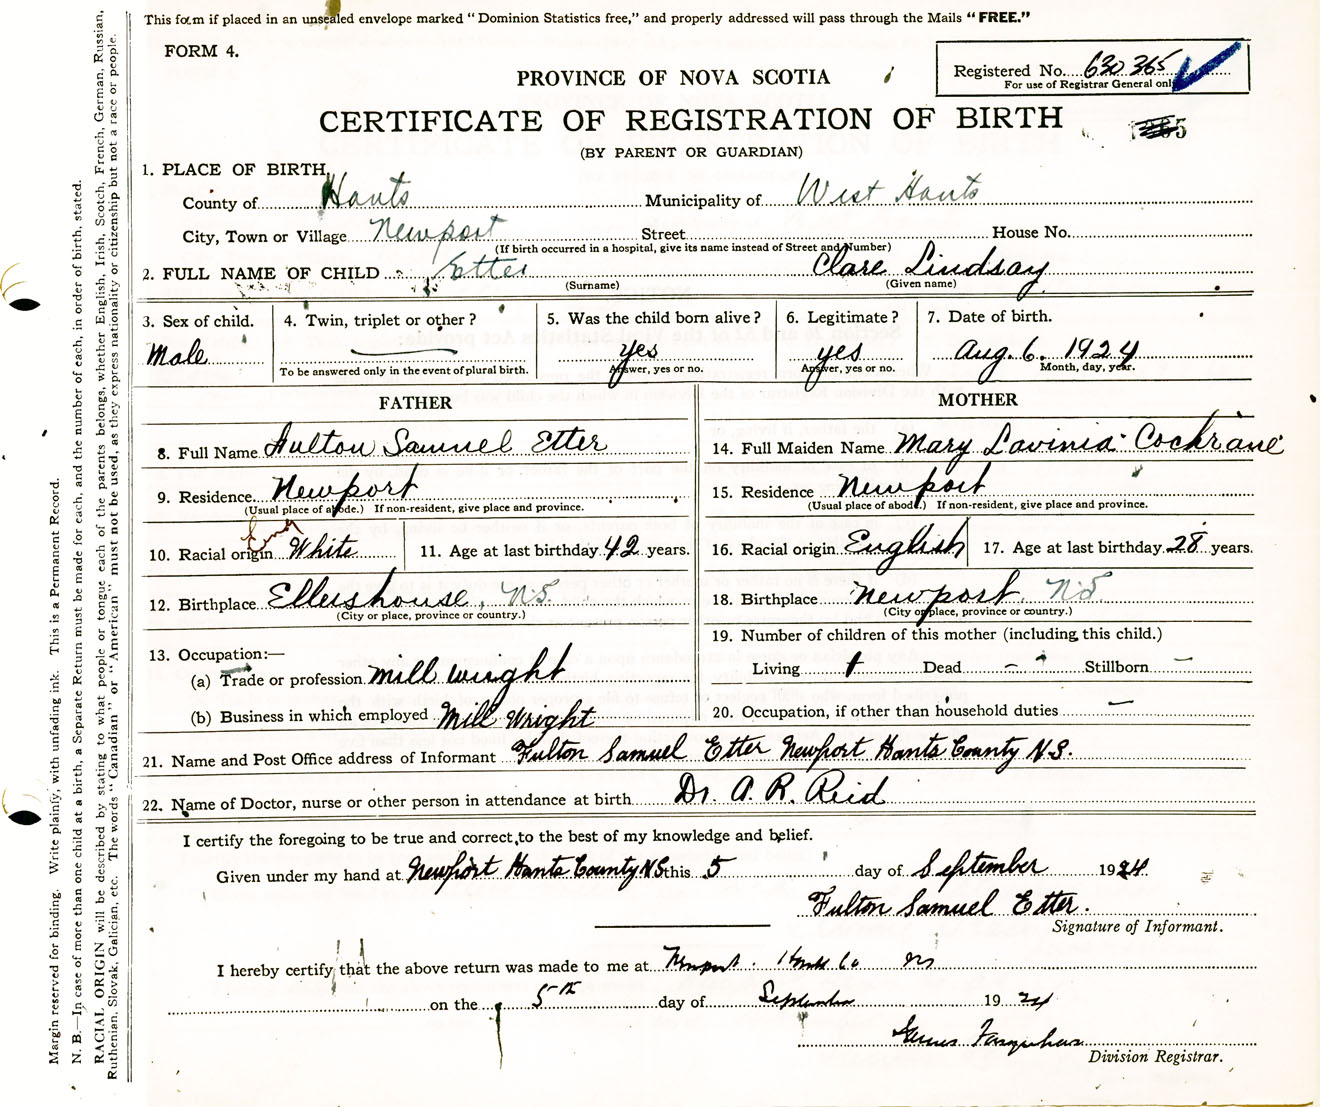 This form if placed in an unsealed envelope marked "Dominion Statistics free," and properly addressed will pass through the Mails "FREE."
FORM 4.
PROVINCE OF NOVA SCOTIA
Registered No. 630365
For use of Registrar General only
CERTIFICATE OF REGISTRATION OF BIRTH
(BY PARENT OR GUARDIAN)
1. PLACE OF BIRTH,
County of Hants Municipality of West Hants
City, Town or Village Newport Street House No.
(If birth occurred in a hospital, give its name instead of Street and Number)
2. FULL NAME OF CHILD Etter Clare Lindsay
(Surname) (Given name)
3. Sex of child. 4. Twin, triplet or other? 5. Was the child born alive? 6. Legitimate? 7. Date of birth.
Male yes yes Aug. 6. 1924
To be answered only in the event of plural birth. Answer, yes or no. Answer, yes or no. Month, day, year.
FATHER MOTHER
8. Full Name Fulton Samuel Etter 14. Full Maiden Name Mary Lavinia Cochrane
9. Residence Newport 15. Residence Newport
(Usual place of abode.) If non-resident, give place and province. (Usual place of abode.) If non-resident, give place and province.
10. Racial origin White 11. Age at last birthday 42 years. 16. Racial origin English 17. Age at last birthday 28 years.
12. Birthplace Ellershouse, NS. 18. Birthplace Newport NS
(City or place, province or country.) (City or place, province or country.)
19. Number of children of this mother (including this child.)
13. Occupation:—
Living 1 Dead – Stillborn –
(a) Trade or profession mill wright
(b) Business in which employed Mill Wright 20. Occupation, if other than household duties —
21. Name and Post Office address of Informant Fulton Samuel Etter Newport Hants County N.S.
22. Name of Doctor, nurse or other person in attendance at birth Dr. A. R. Reid
I certify the foregoing to be true and correct, to the best of my knowledge and belief.
Given under my hand at Newport Hants County NS this 5 day of September 1924.
Fulton Samuel Etter.
Signature of Informant.
I hereby certify that the above return was made to me at Newport. Hants Co NS
on the 5th day of September 1924
Farquhar
Division Registrar.
Margin reserved for binding. Write plainly, with unfading ink. This is a Permanent Record.
N. B.—In case of more than one child at a birth, a Separate Return must be made for each, and the number of each, in order of birth, stated.
RACIAL ORIGIN will be described by stating to what people or tongue each of the parents belongs, whether English, Irish, Scotch, French, German, Russian,
Ruthenian, Slovak, Galician, etc. The words "Canadian" or "American" must not be used, as they express nationality or citizenship but not a race or people.